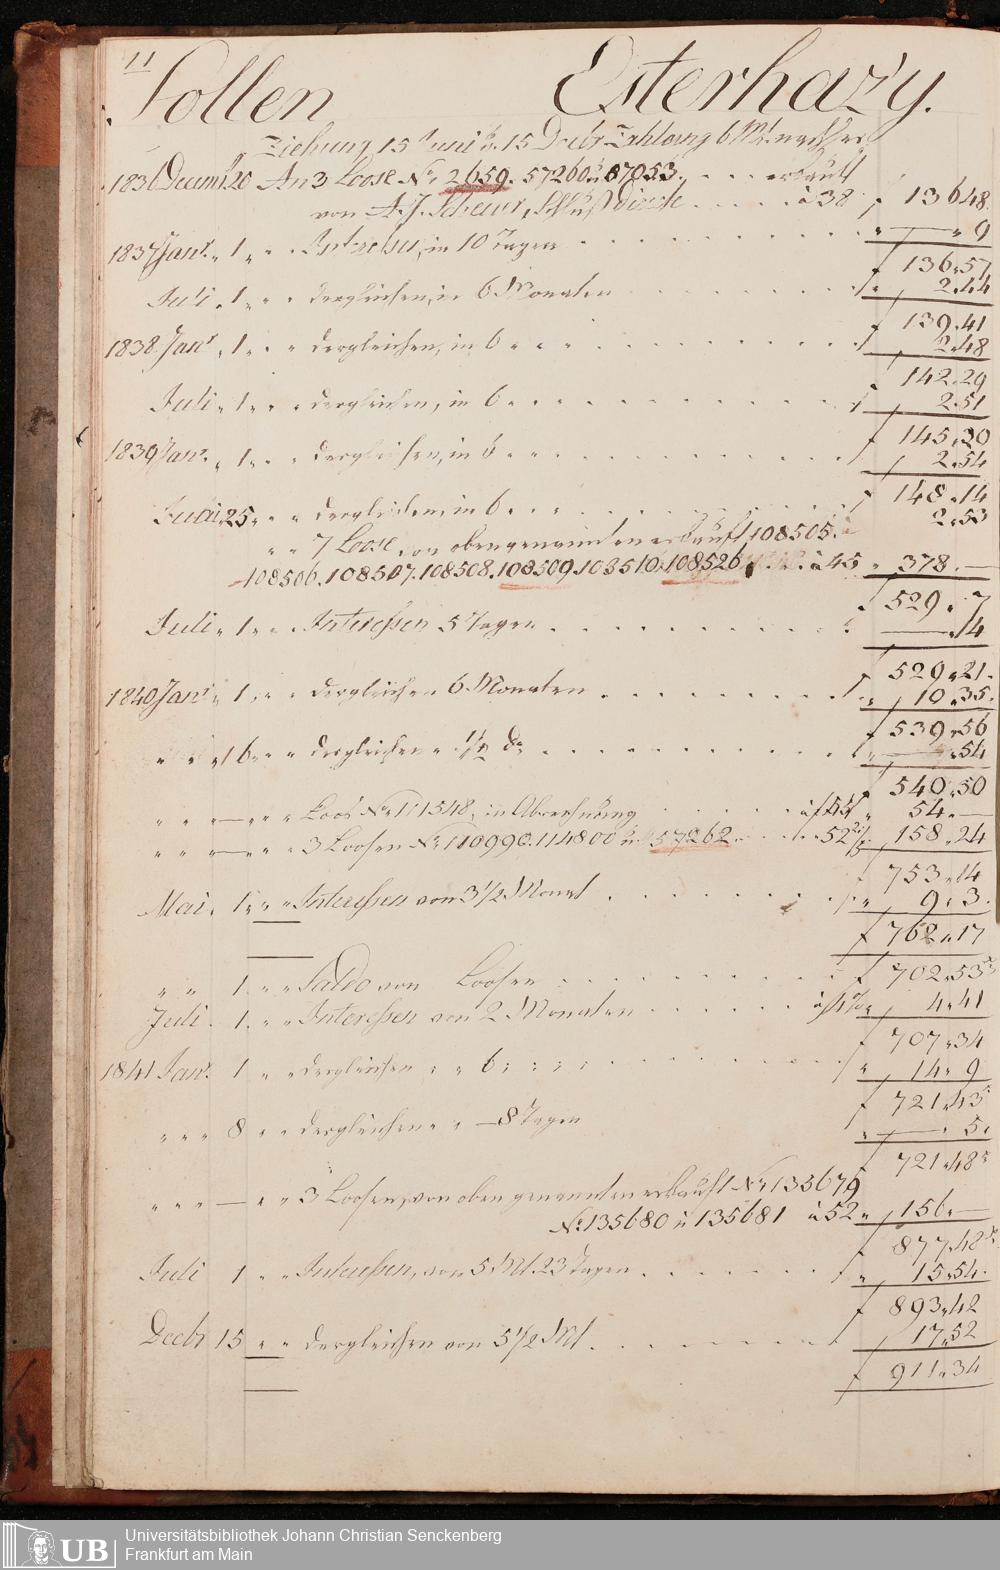 11
Sollen Esterhazy.
Ziehung 15 Juni u. 15 Decbr Zahlung 6 Mt. nachher
1836 Decemb 20 An 3 Loose No. 2659. 57260 u 67053. erkauft
von A. J. Scheuer, à 38 f 136 48
1837 Janr. 1 Interessen, in 10 Tagen 9
f 136.57
Juli 1 dergleichen, in 6 Monaten 2.44
f 139.41
1838 Janr 1 dergleichen, in 6 2.48
142.29
Juli 1 dergleichen, in 6 2.51
f 145.20
1839 Janr. 1 dergleichen, in 6 2.54
148.14
25 dergleichen, in 6 2.53
7 Loose, von obengenannten erkauft 108505.
108506. 108507. 108508. 108509. 103510. 108526 à 45 378.—
529.7
Juli 1 Interessen 5 Tagen 14
f 529.21.
1840 Janr 1 dergleichen 6 Monaten 10.35.
f 539.56
16 dergleichen 1/2 do 54
f 540.50
Loos No. 111548, in Abrechnung 54.—
3 Loosen No. 110990. 114800 u. 57262 52 158.24
753.14
Mai 1 Interessen von 3 1/2 Monat 9.3.
f 762.17
1 Saldo von Loosen f 702.53
Juli 1 Interessen von 2 Monaten 4.41
f 707.34
1841 Janr. 1 dergleichen 6 14.9
f 721.43
8 dergleichen — 8 Tagen 5.
721.48
3 Loosen, von oben genannten erkauft No. 135679
No. 135680 u 135681 à 52 156.—
f 877.48
Juli 1 Interessen, von 5 Mt. 23 Tagen 15.54.
f 893.42
Decbr 15 dergleichen von 5 1/2 Mt 17.52
f 911.34
UB
Universitätsbibliothek Johann Christian Senckenberg
Frankfurt am Main